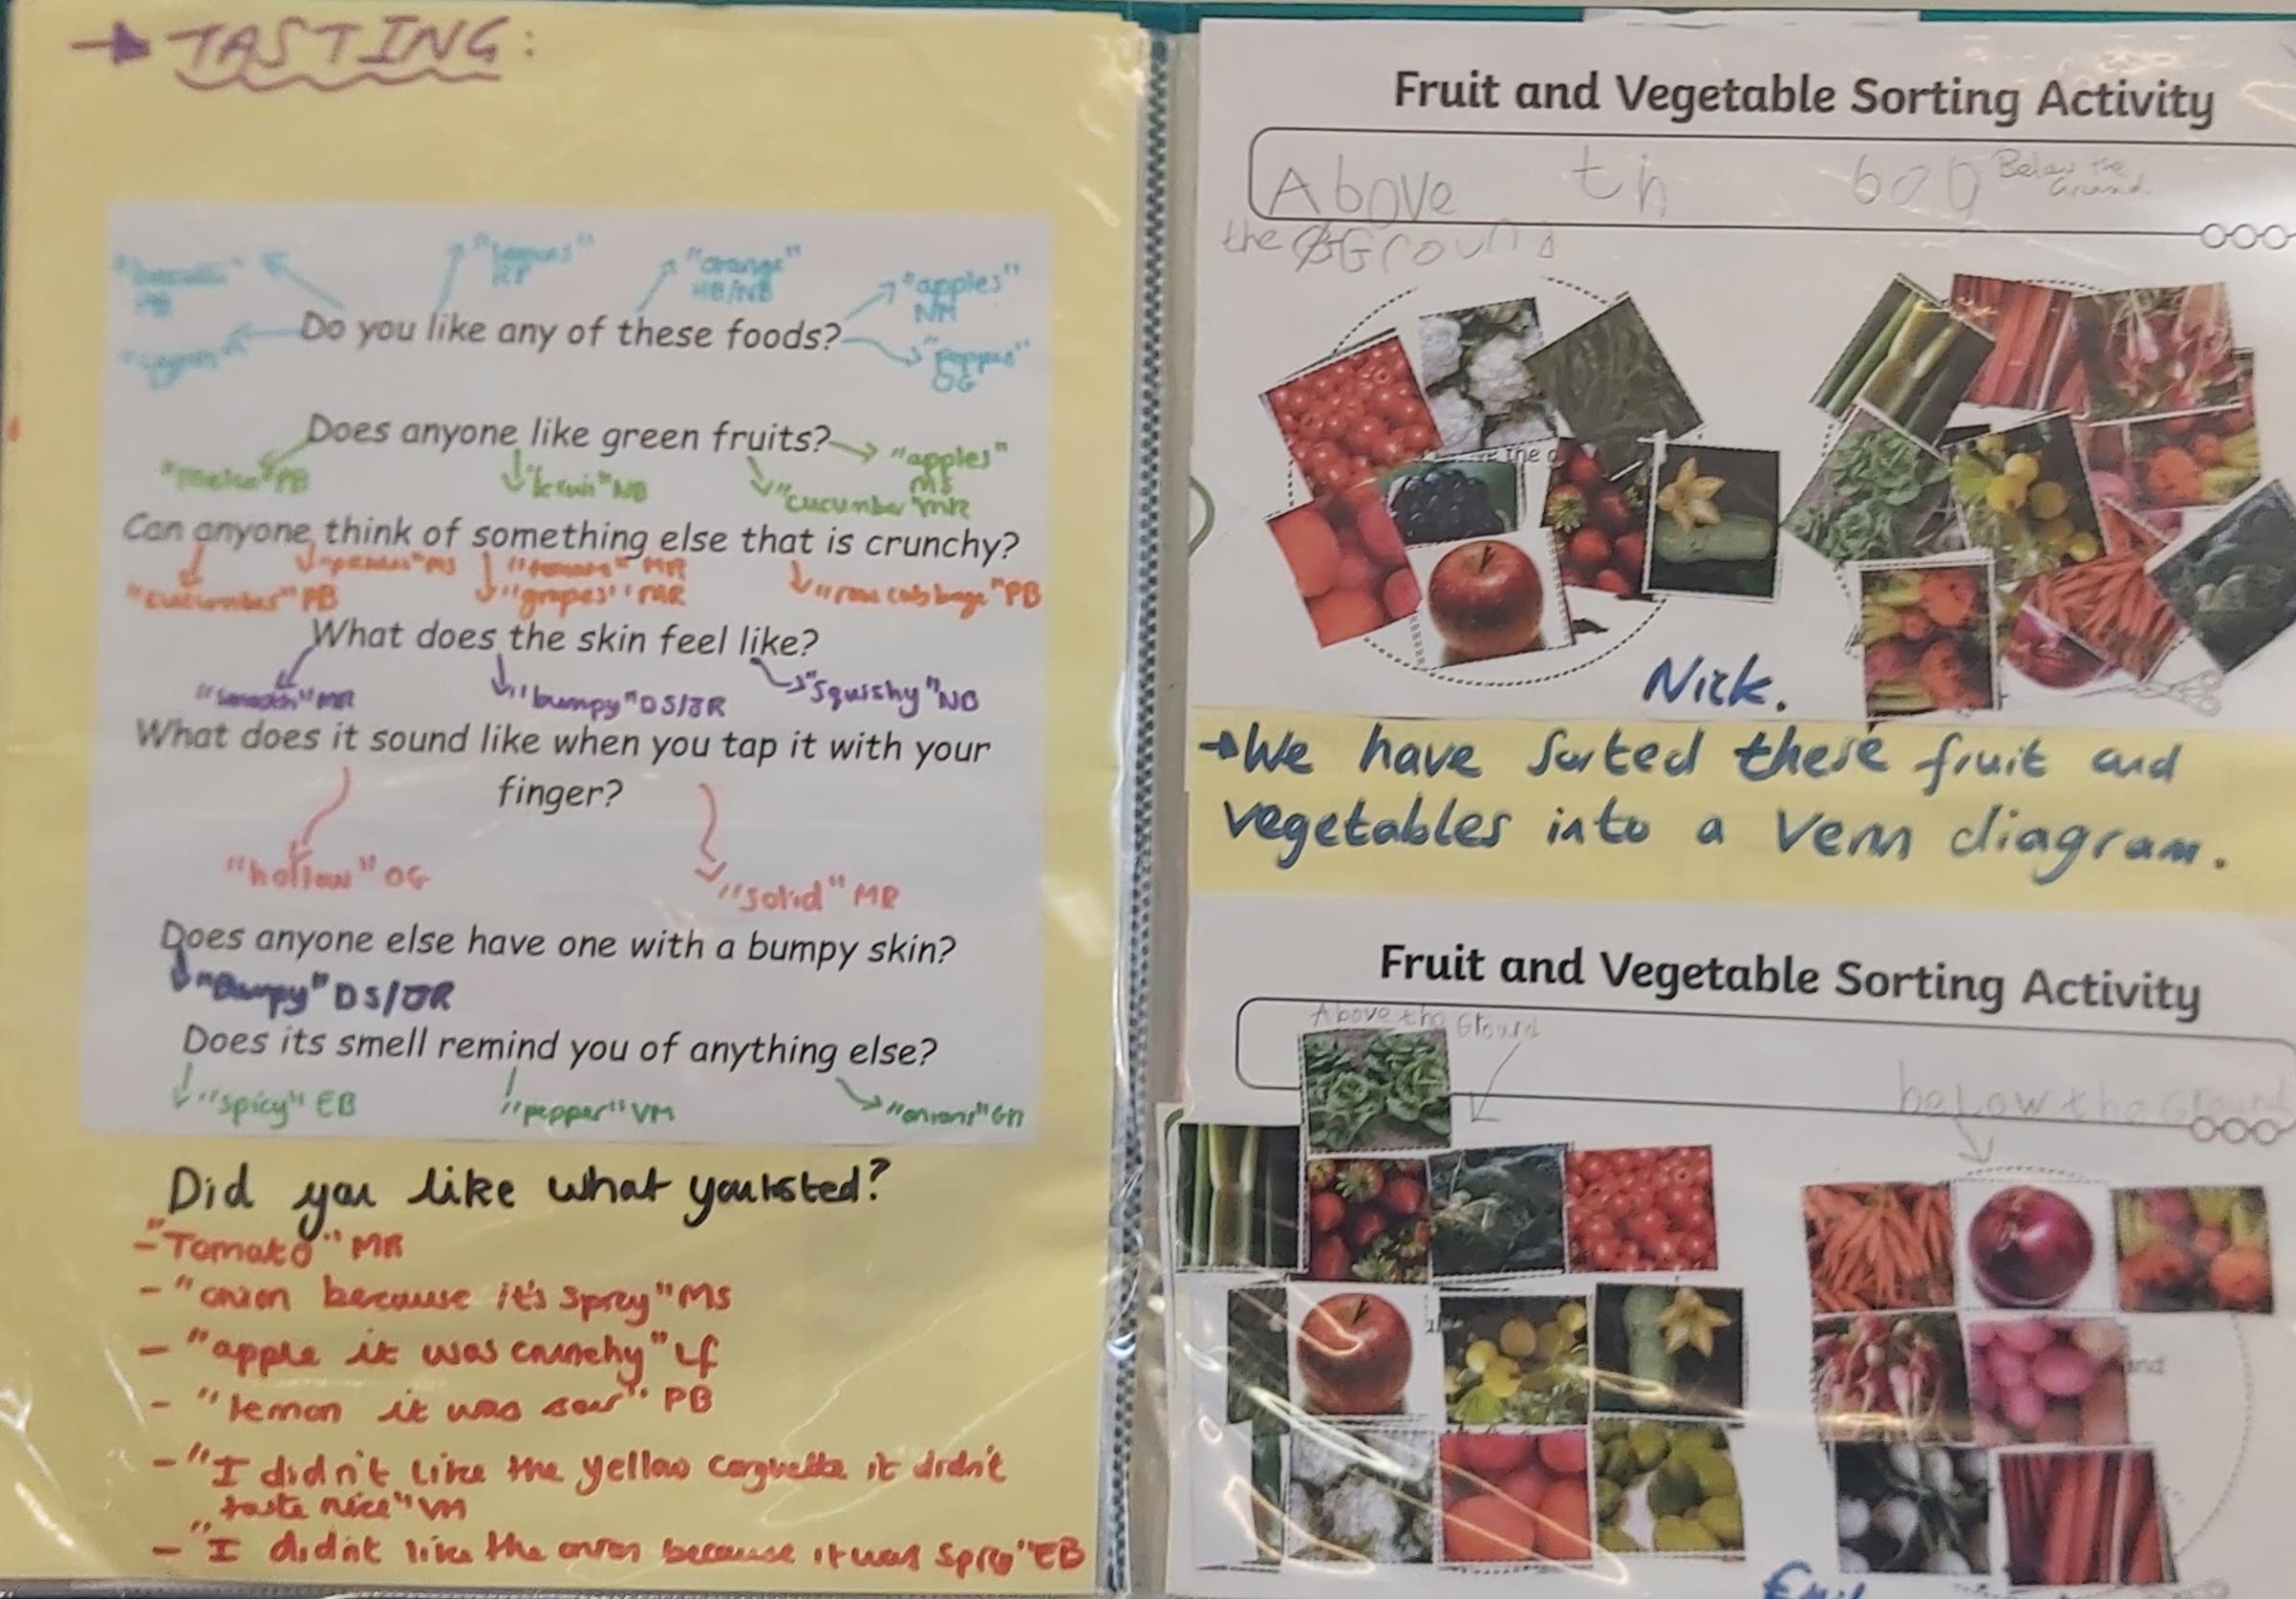 TASTING:
"lemons" "orange"
HB/NB
"apples"
NH
Do you like any of these foods?
OG
Does anyone like green fruits?
"apples"
MS
PB
NB
"cucumber" MR
Can anyone think of something else that is crunchy?
MS
MR
PB
"grapes" MR
"raw cabbage" PB
What does the skin feel like?
"smooth" MR
"bumpy" DS/JR
"squishy" NB
What does it sound like when you tap it with your
finger?
"hollow" OG
"solid" MR
Does anyone else have one with a bumpy skin?
"Bumpy" DS/JR
Does its smell remind you of anything else?
"spicy" EB
"pepper" VM
"onions"
Did you like what you
- "Tomato" MR
- "onion because it's" MS
- "apple it was crunchy" LF
- "lemon it was sour" PB
- "I didn't like the yellow it didn't
taste nice" VM
- "I didn't like the because it was EB
Fruit and Vegetable Sorting Activity
Above th Below the
Ground
the Ground
the
Nick.
We have sorted these fruit and
vegetables into a Venn diagram.
Fruit and Vegetable Sorting Activity
Above the Ground
below the Ground